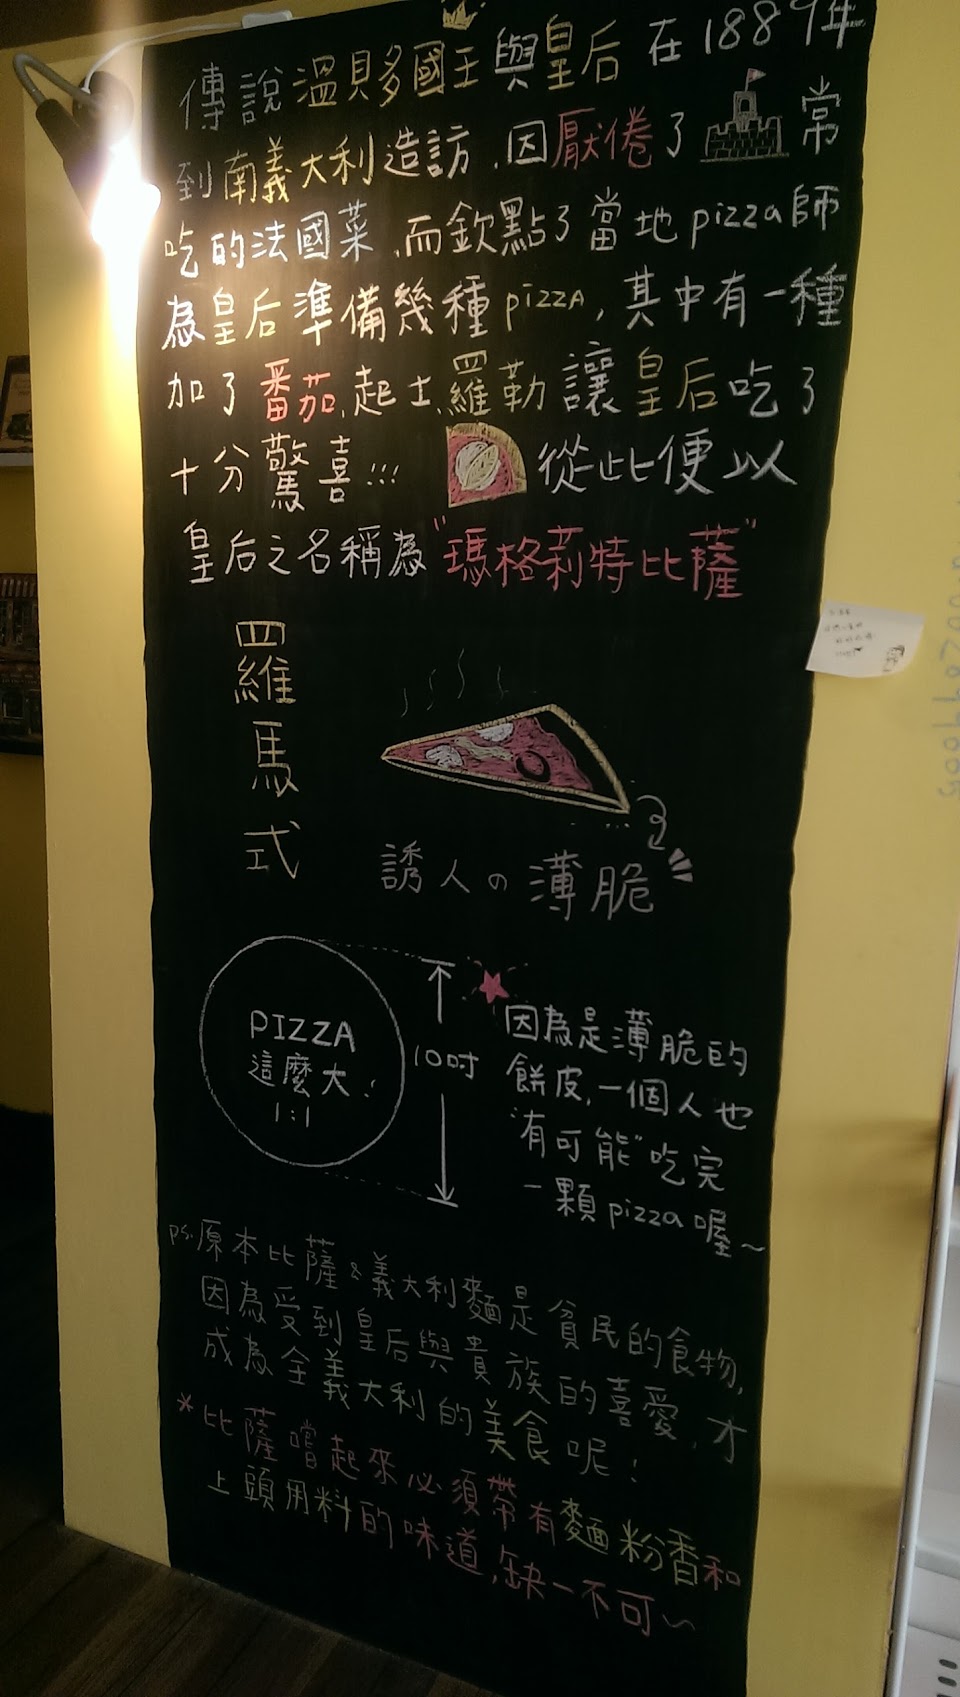 傳說溫貝多國王與皇后在1889年
到南義大利造訪,因厭倦了常
吃的法國菜,而欽點了當地pizza師
為皇后準備幾種pizzA,其中有一種
加了番茄、起士、羅勒讓皇后吃了
十分驚喜!!! 從此便以
皇后之名稱為"瑪格莉特比薩"
羅馬式
誘人の薄脆
PIZZA
這麼大!
1:1
10吋
因為是薄脆的
餅皮,一個人也
"有可能"吃完
一顆pizza喔~
ps.原本比薩&義大利麵是貧民的食物,
因為受到皇后與貴族的喜愛,才
成為全義大利的美食呢!
*比薩嚐起來必須帶有麵粉香和
上頭用料的味道,缺一不可~